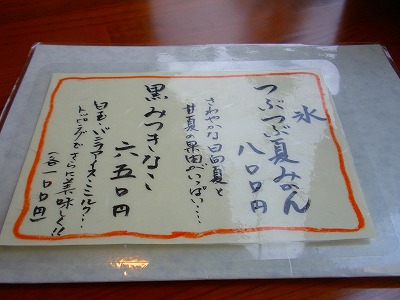 氷
つぶつぶ夏みかん
八〇〇円
さわやかな日向夏と
甘夏の果肉がいっぱい…
黒みつきなこ
六五〇円
白玉・バニラアイス・ミルク…
トッピングでさらに美味しく!!
(各一〇〇円)